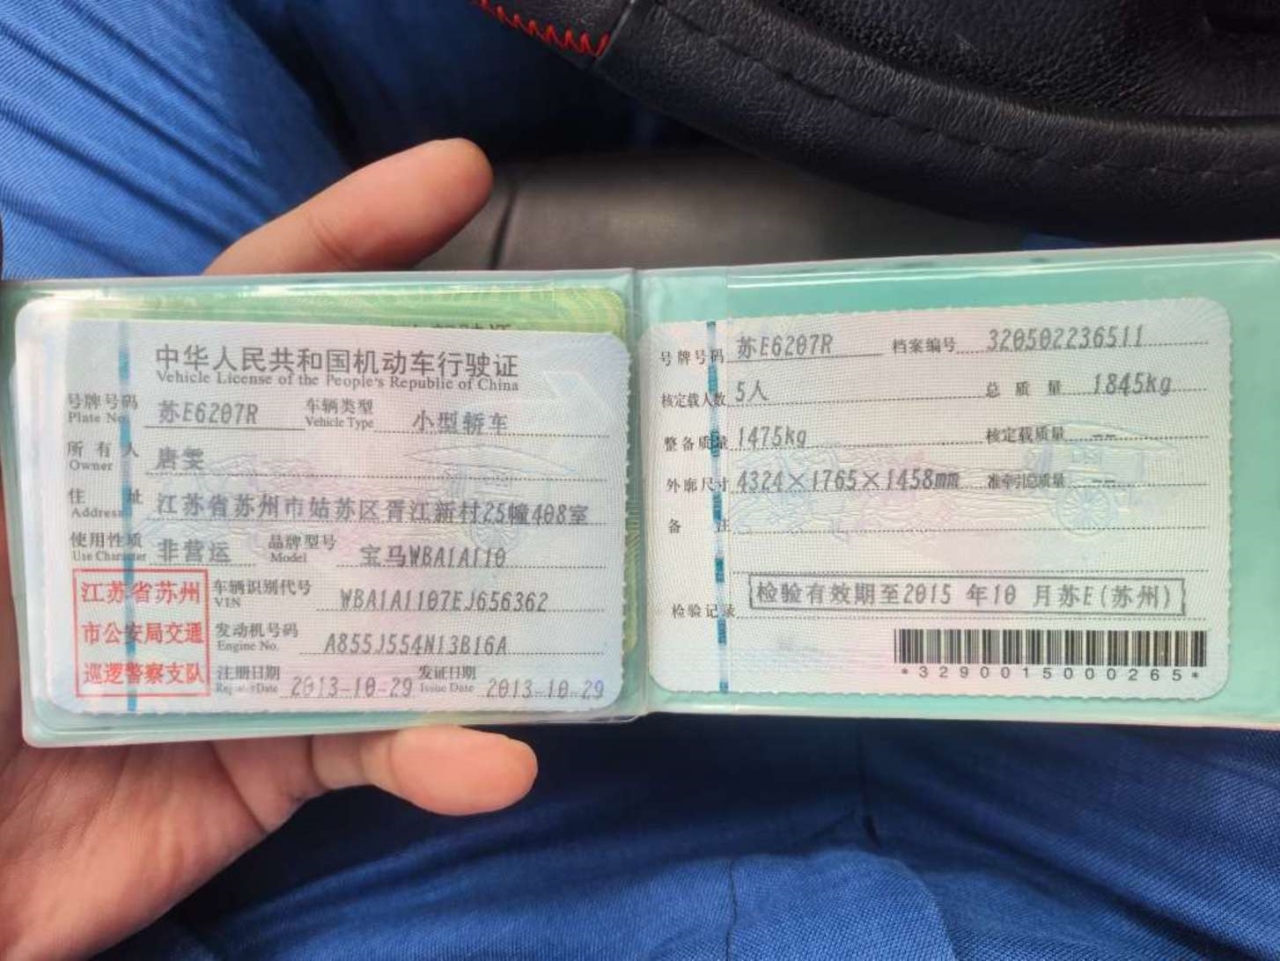 中华人民共和国机动车行驶证
Vehicle License of the People's Republic of China
号牌号码 苏E6207R 车辆类型 小型轿车
Plate No. Vehicle Type
所有人 唐雯
Owner
住址 江苏省苏州市姑苏区胥江新村25幢408室
Address
使用性质 非营运 品牌型号 宝马WBA1A110
Use Character Model
江苏省苏州
市公安局交通
巡逻警察支队
车辆识别代号 WBA1A1107EJ656362
VIN
发动机号码 A855J554N13B16A
Engine No.
注册日期 2013-10-29 发证日期 2013-10-29
Register Date Issue Date
号牌号码 苏E6207R 档案编号 320502236511
核定载人数 5人 总质量 1845kg
整备质量 1475kg 核定载质量 --
外廓尺寸 4324×1765×1458mm 准牵引总质量 --
备注
检验记录 检验有效期至2015年10月苏E(苏州)
*3290015000265*